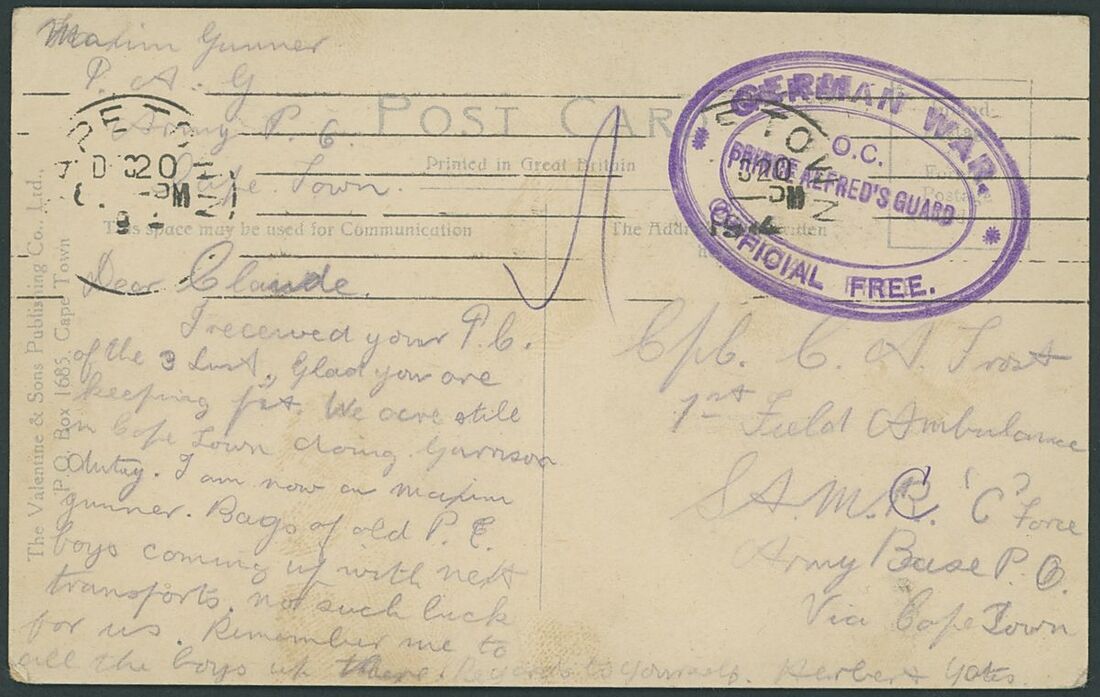 Maxim Gunner
P. A. G
Army P. O.
Cape Town.
POST CARD
Printed in Great Britain
This space may be used for Communication
The Address
Postage
GERMAN WAR.
O.C.
PRINCE ALFRED'S GUARD
OFFICIAL FREE.
CAPE TOWN
D 20
PM
E TOWN
D 20
PM
The Valentine & Sons Publishing Co., Ltd.,
P.O. Box 1685, Cape Town
Dear Claude.
I received your P. C.
of the 3 Inst., Glad you are
keeping fit. We are still
in Cape Town doing Garrison
duty. I am now a maxim
gunner. Bags of old P. E.
boys coming up with next
transports, not such luck
for us. Remember me to
all the boys up there. Regards to Yourself. Herbert Yates
Cpl. C. A. Trost
1st Field Ambulance
S A. M. C. 'C' Force
Army Base P. O.
Via Cape Town